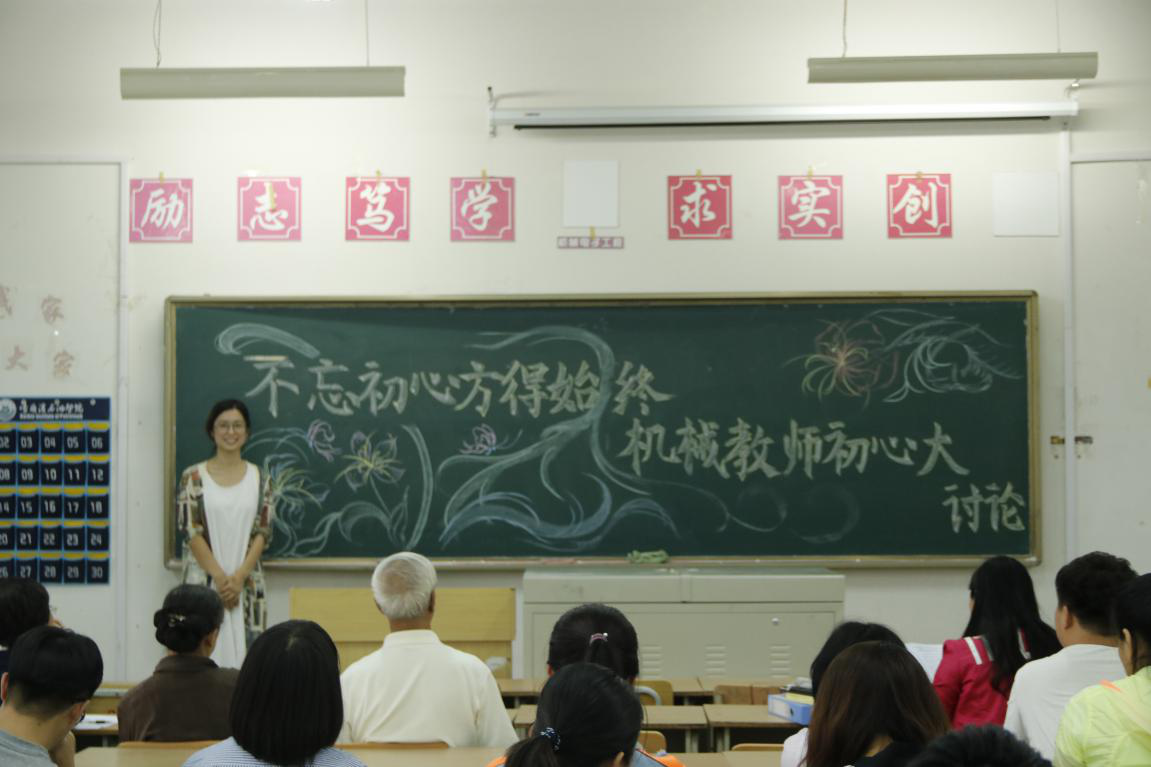 励志笃学 求实创
不忘初心方得始终
机械教师初心大
讨论
家
大家
02 03 04 05 06
08 09 10 11 12
14 15 16 17 18
20 21 22 23 24
26 27 28 29 30